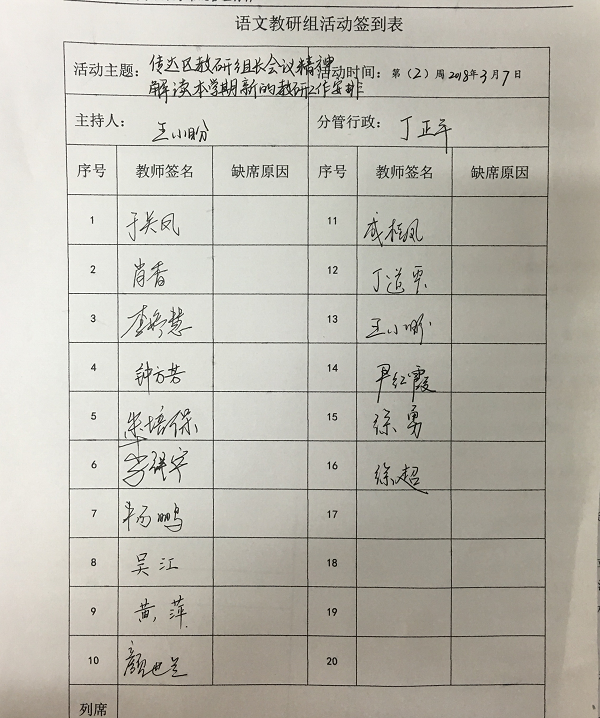 语文教研组活动签到表
活动主题： 传达区教研组长会议精神 活动时间： 第（2）周 2018年3月7日
解读本学期新的教研工作安排
主持人： 王小盼 分管行政： 丁正平
序号 教师签名 缺席原因 序号 教师签名 缺席原因
1 于关凤 11 成桂凤
2 肖香 12 丁道票
3 李 慧 13 王小盼
4 钟方芳 14 尹红霞
5 朱培保 15 徐勇
6 李 16 徐超
7 杨鹏 17
8 吴江 18
9 黄萍 19
10 颜 20
列席